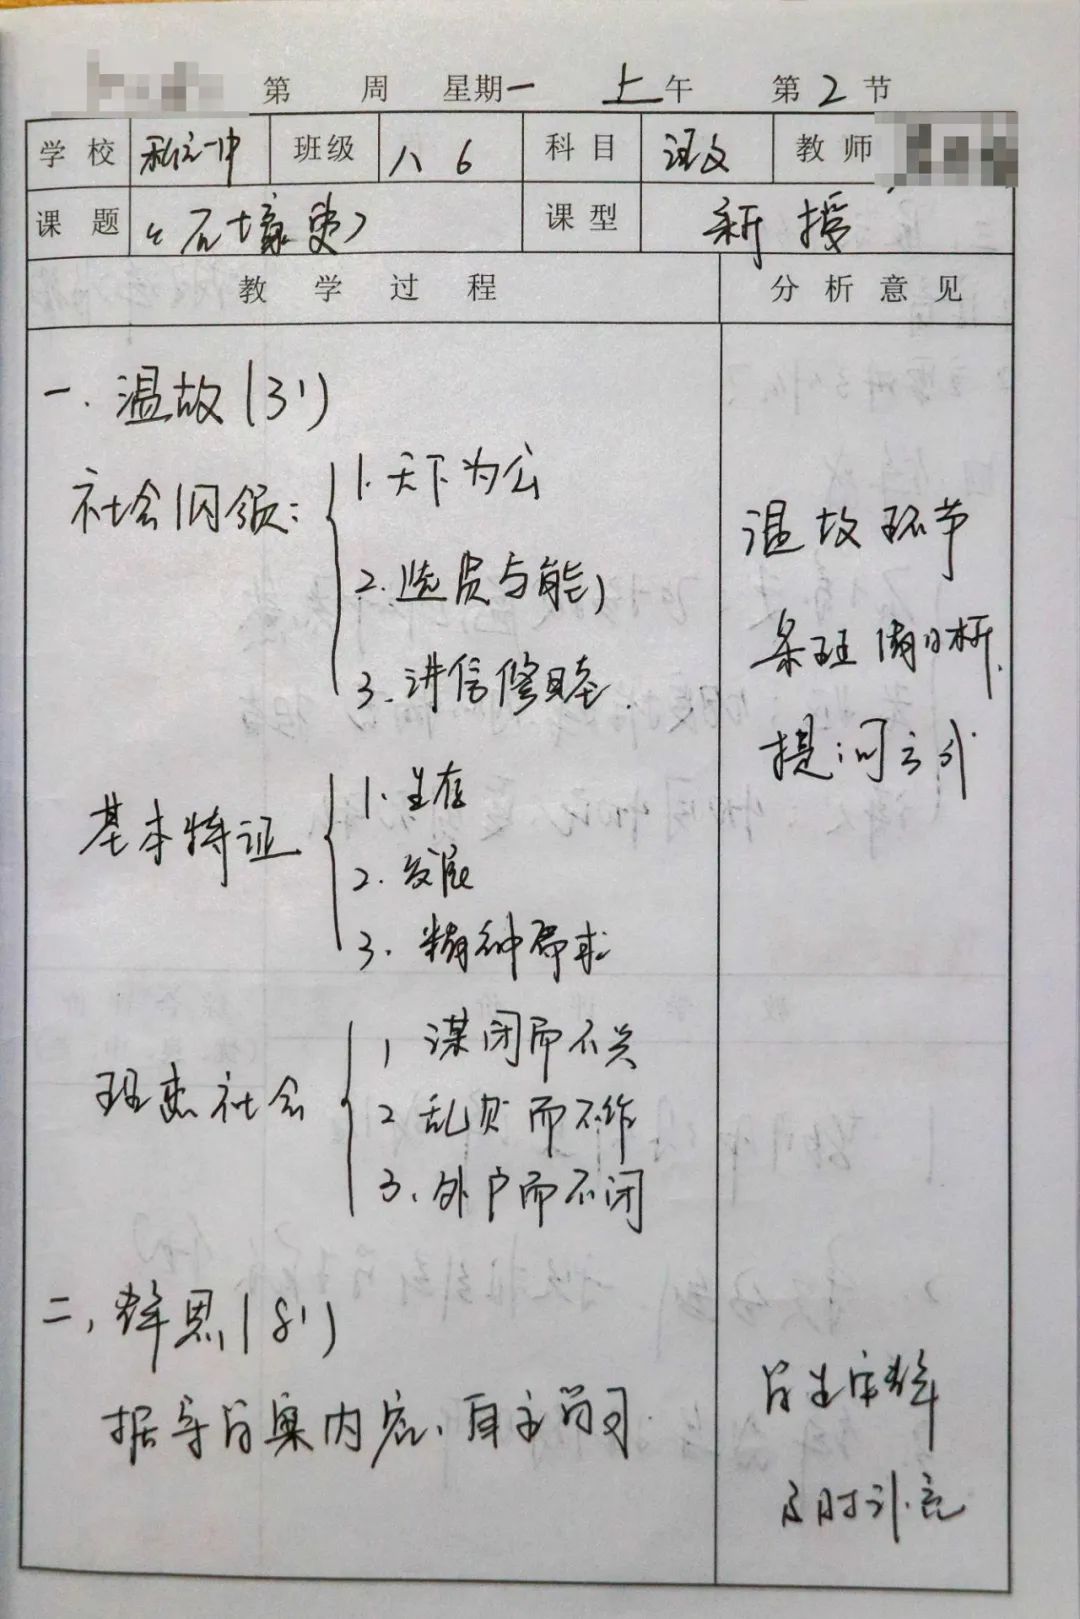 第 周 星期一 上午 第2节
学校 一中 班级 八6 科目 语文 教师
课题 《石壕吏》 课型 新授
教学过程 分析意见
一.温故(3')
社会纲领:
1.天下为公
2.选贤与能
3.讲信修睦.
基本特证
1.生存
2.发展
3.精神需求
理想社会
1 谋闭而不兴
2 乱贼而不作
3、外户而不闭
二,舞思(8')
据导学案内容、自主学习.
温故环节
条理清晰.
提问方式
及时补充